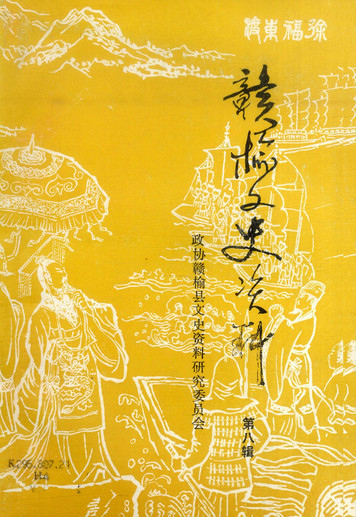 徐福東渡
赣榆文史资料
第八辑
政协赣榆县文史资料研究委员会